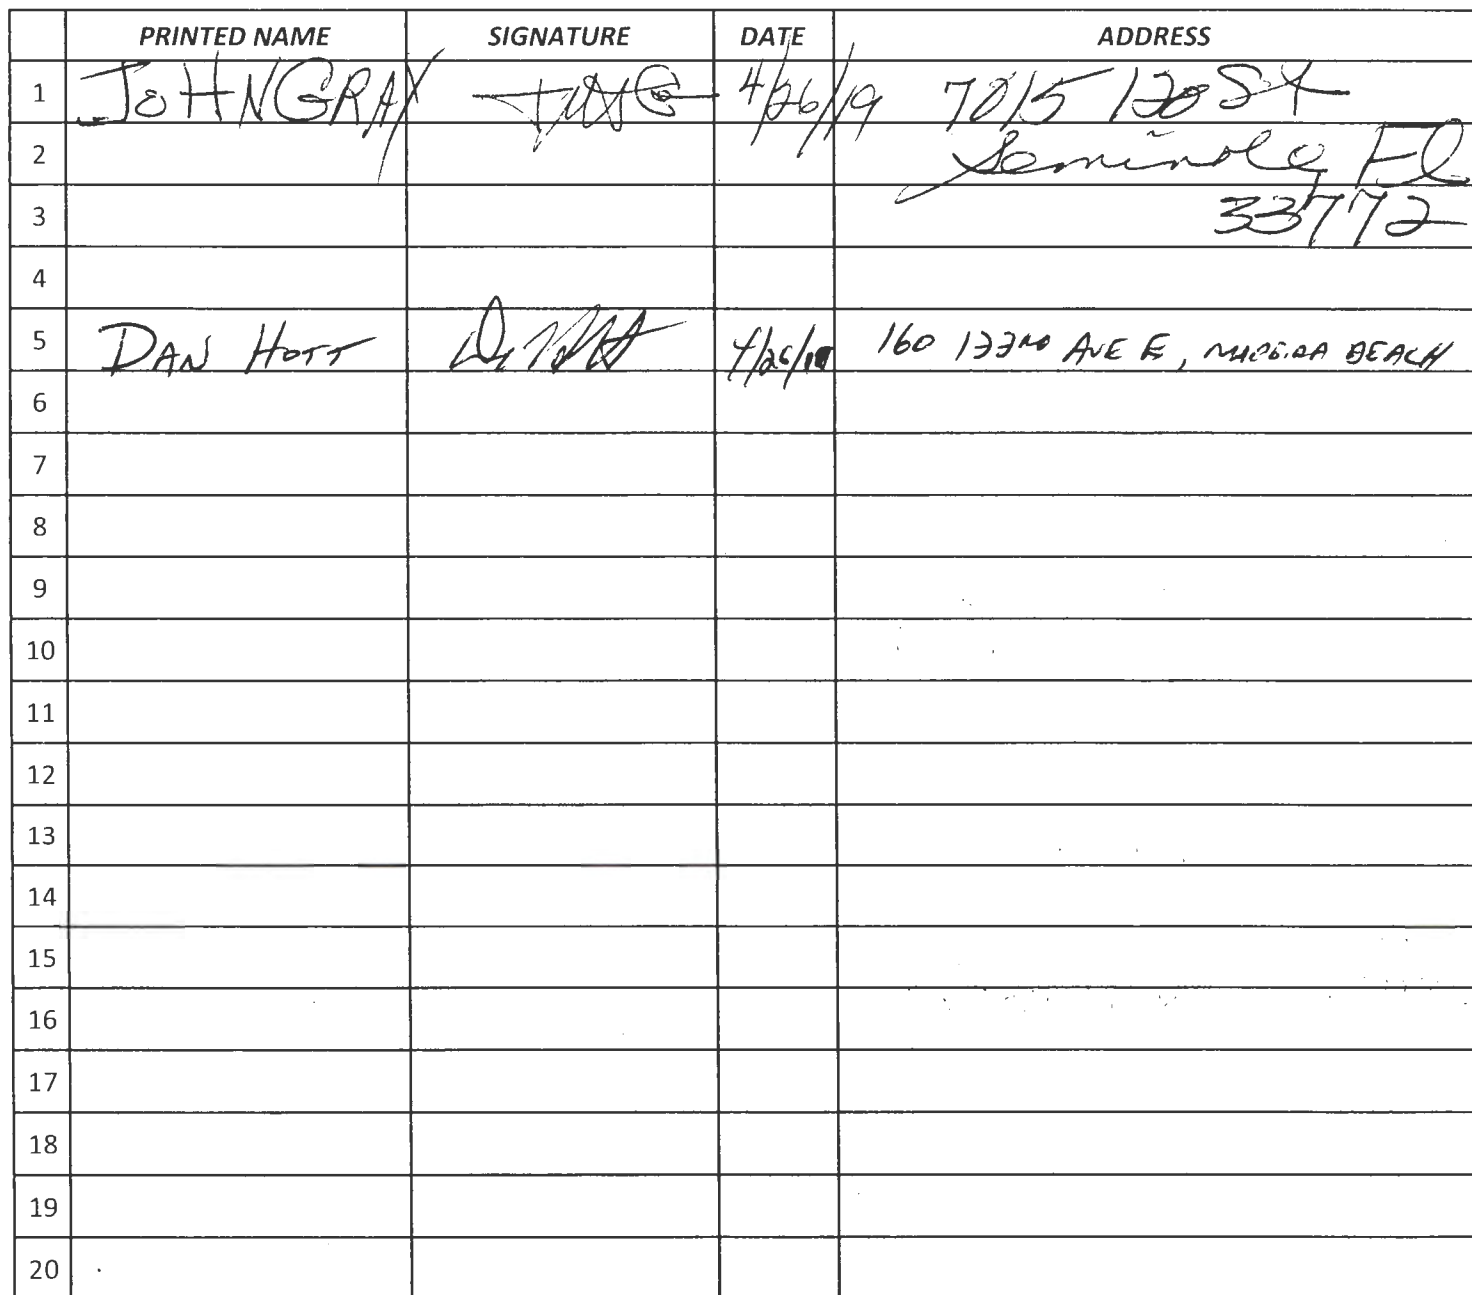 PRINTED NAME SIGNATURE DATE ADDRESS
1 JOHN GRAY 4/26/19 7015 120 St
2 Seminole, Fl
3 33772
4
5 DAN HOTT 4/26/19 160 133RD AVE E, MADEIRA BEACH
6
7
8
9
10
11
12
13
14
15
16
17
18
19
20